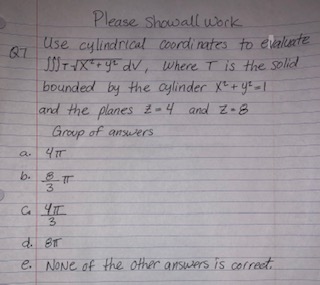 Please Show all work
Q7 Use cylindrical coordinates to evaluate
∭T √x²+y² dV, where T is the solid
bounded by the cylinder x²+y²=1
and the planes z=4 and z=8
Group of answers
a. 4π
b. 8/3 π
c. 4π/3
d. 8π
e. None of the other answers is correct.